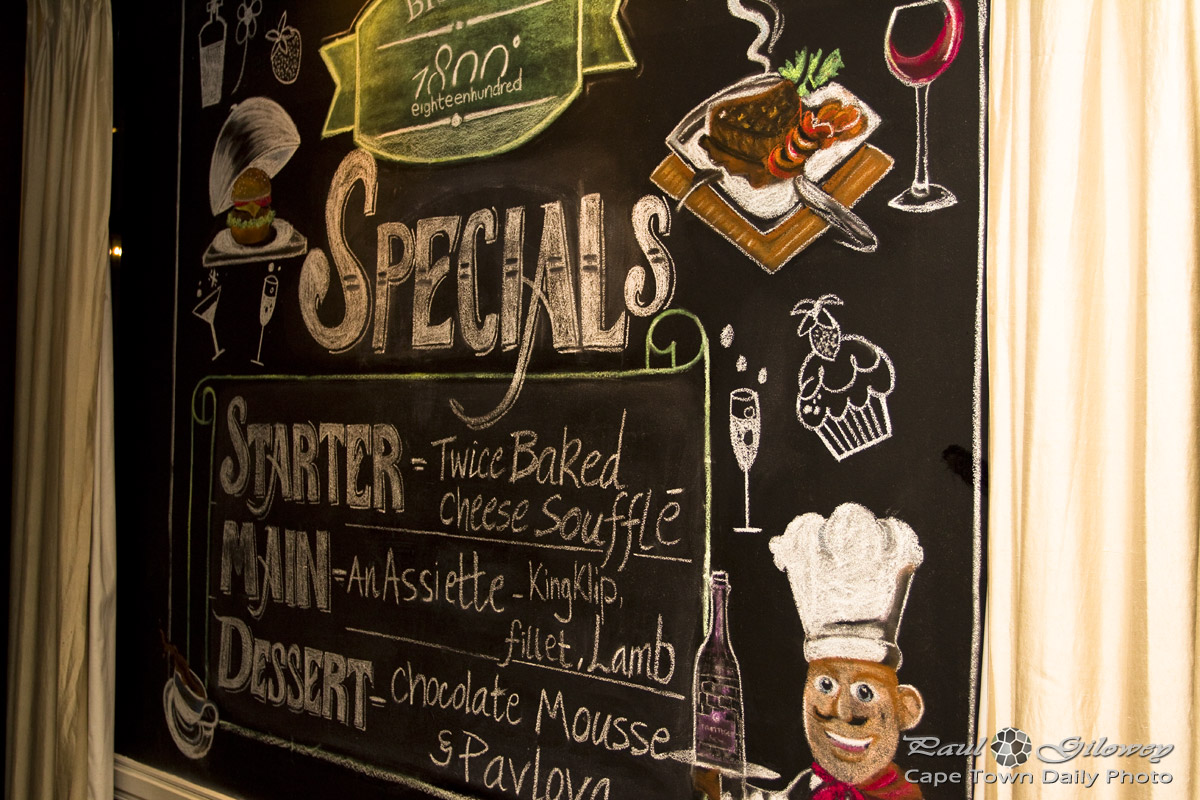 1800°
eighteenhundred
SPECIALS
STARTER = Twice Baked
cheese Soufflē
MAIN = An Assiette - KingKlip,
fillet, Lamb
DESSERT = Chocolate Mousse
& Pavlova
Paul Gilowey
Cape Town Daily Photo